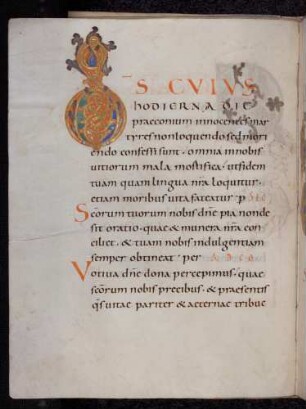 DS CUIUS
HODIERNA DIE
praeconium innocentes mar
tyres non loquendo sed mori
endo confessi sunt. omnia in nobis
uitiorum mala mortifica. ut fidem
tuam quam lingua nra loquitur.
etiam moribus uita fateatur. p
Scorum tuorum nobis dne pia non de
sit oratio. quae & munera nra con
ciliet. & tuam nobis indulgentiam
semper obtineat. per
Votiua dne dona percepimus. quae
scorum nobis precibus. & praesentis
qs uitae pariter & aeternae tribue